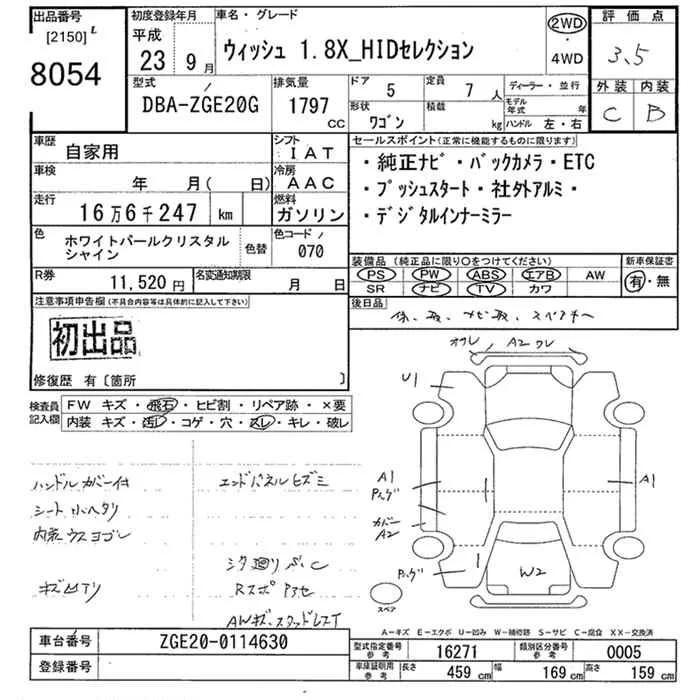 出品番号
[2150] L
8054
初度登録年月
平成
23 9月
車名・グレード
ウィッシュ 1.8X_HIDセレクション
2WD
・
4WD
評価点
3.5
外装 内装
C B
型式
DBA-ZGE20G
排気量
1797
CC
ドア 5
定員 7 人
形状 ワゴン
積載 kg
ディーラー・並行
モデル年式 年
ハンドル 左・右
車歴 自家用
シフト IAT
車検 年 月( 日)
冷房 AAC
走行 16万6千247 km
燃料 ガソリン
色 ホワイトパールクリスタルシャイン
色替
色コード 070
R券 11,520円
名変通知期限 月 日
セールスポイント(正常に機能するものに限ります)
・純正ナビ・バックカメラ・ETC
・プッシュスタート・社外アルミ・
・デジタルインナーミラー
装備品 (純正品に限り○をつけてください)
PS PW ABS エアB AW
SR ナビ TV カワ
新車保証書
有・無
後日品
保、取、ナビ取、スペアキー
注意事項申告欄(不具合内容等は具体的に記入して下さい)
初出品
修復歴 有〔箇所 〕
検査員記入欄
FW キズ・飛石・ヒビ割・リペア跡・×要
内装 キズ・汚レ・コゲ・穴・スレ・キレ・破レ
ハンドルカバー付
シート小ヘタリ
内装ウスヨゴレ
キズ凹アリ
エンドパネルヒズミ
シタ廻りサビ、C
Rスポ アワセ
AWキズ・スタッドレスT
ワレ A2 ワレ
U1
A1
カバー
A2
A1
W2
スペア
A-キズ E-エクボ U-凹み W-補修跡 S-サビ C-腐食 XX-交換済
車台番号 ZGE20-0114630
登録番号
型式指定番号 参考 16271
類別区分番号 参考 0005
車庫証明用 参考
長さ 459 cm
幅 169 cm
高さ 159 cm